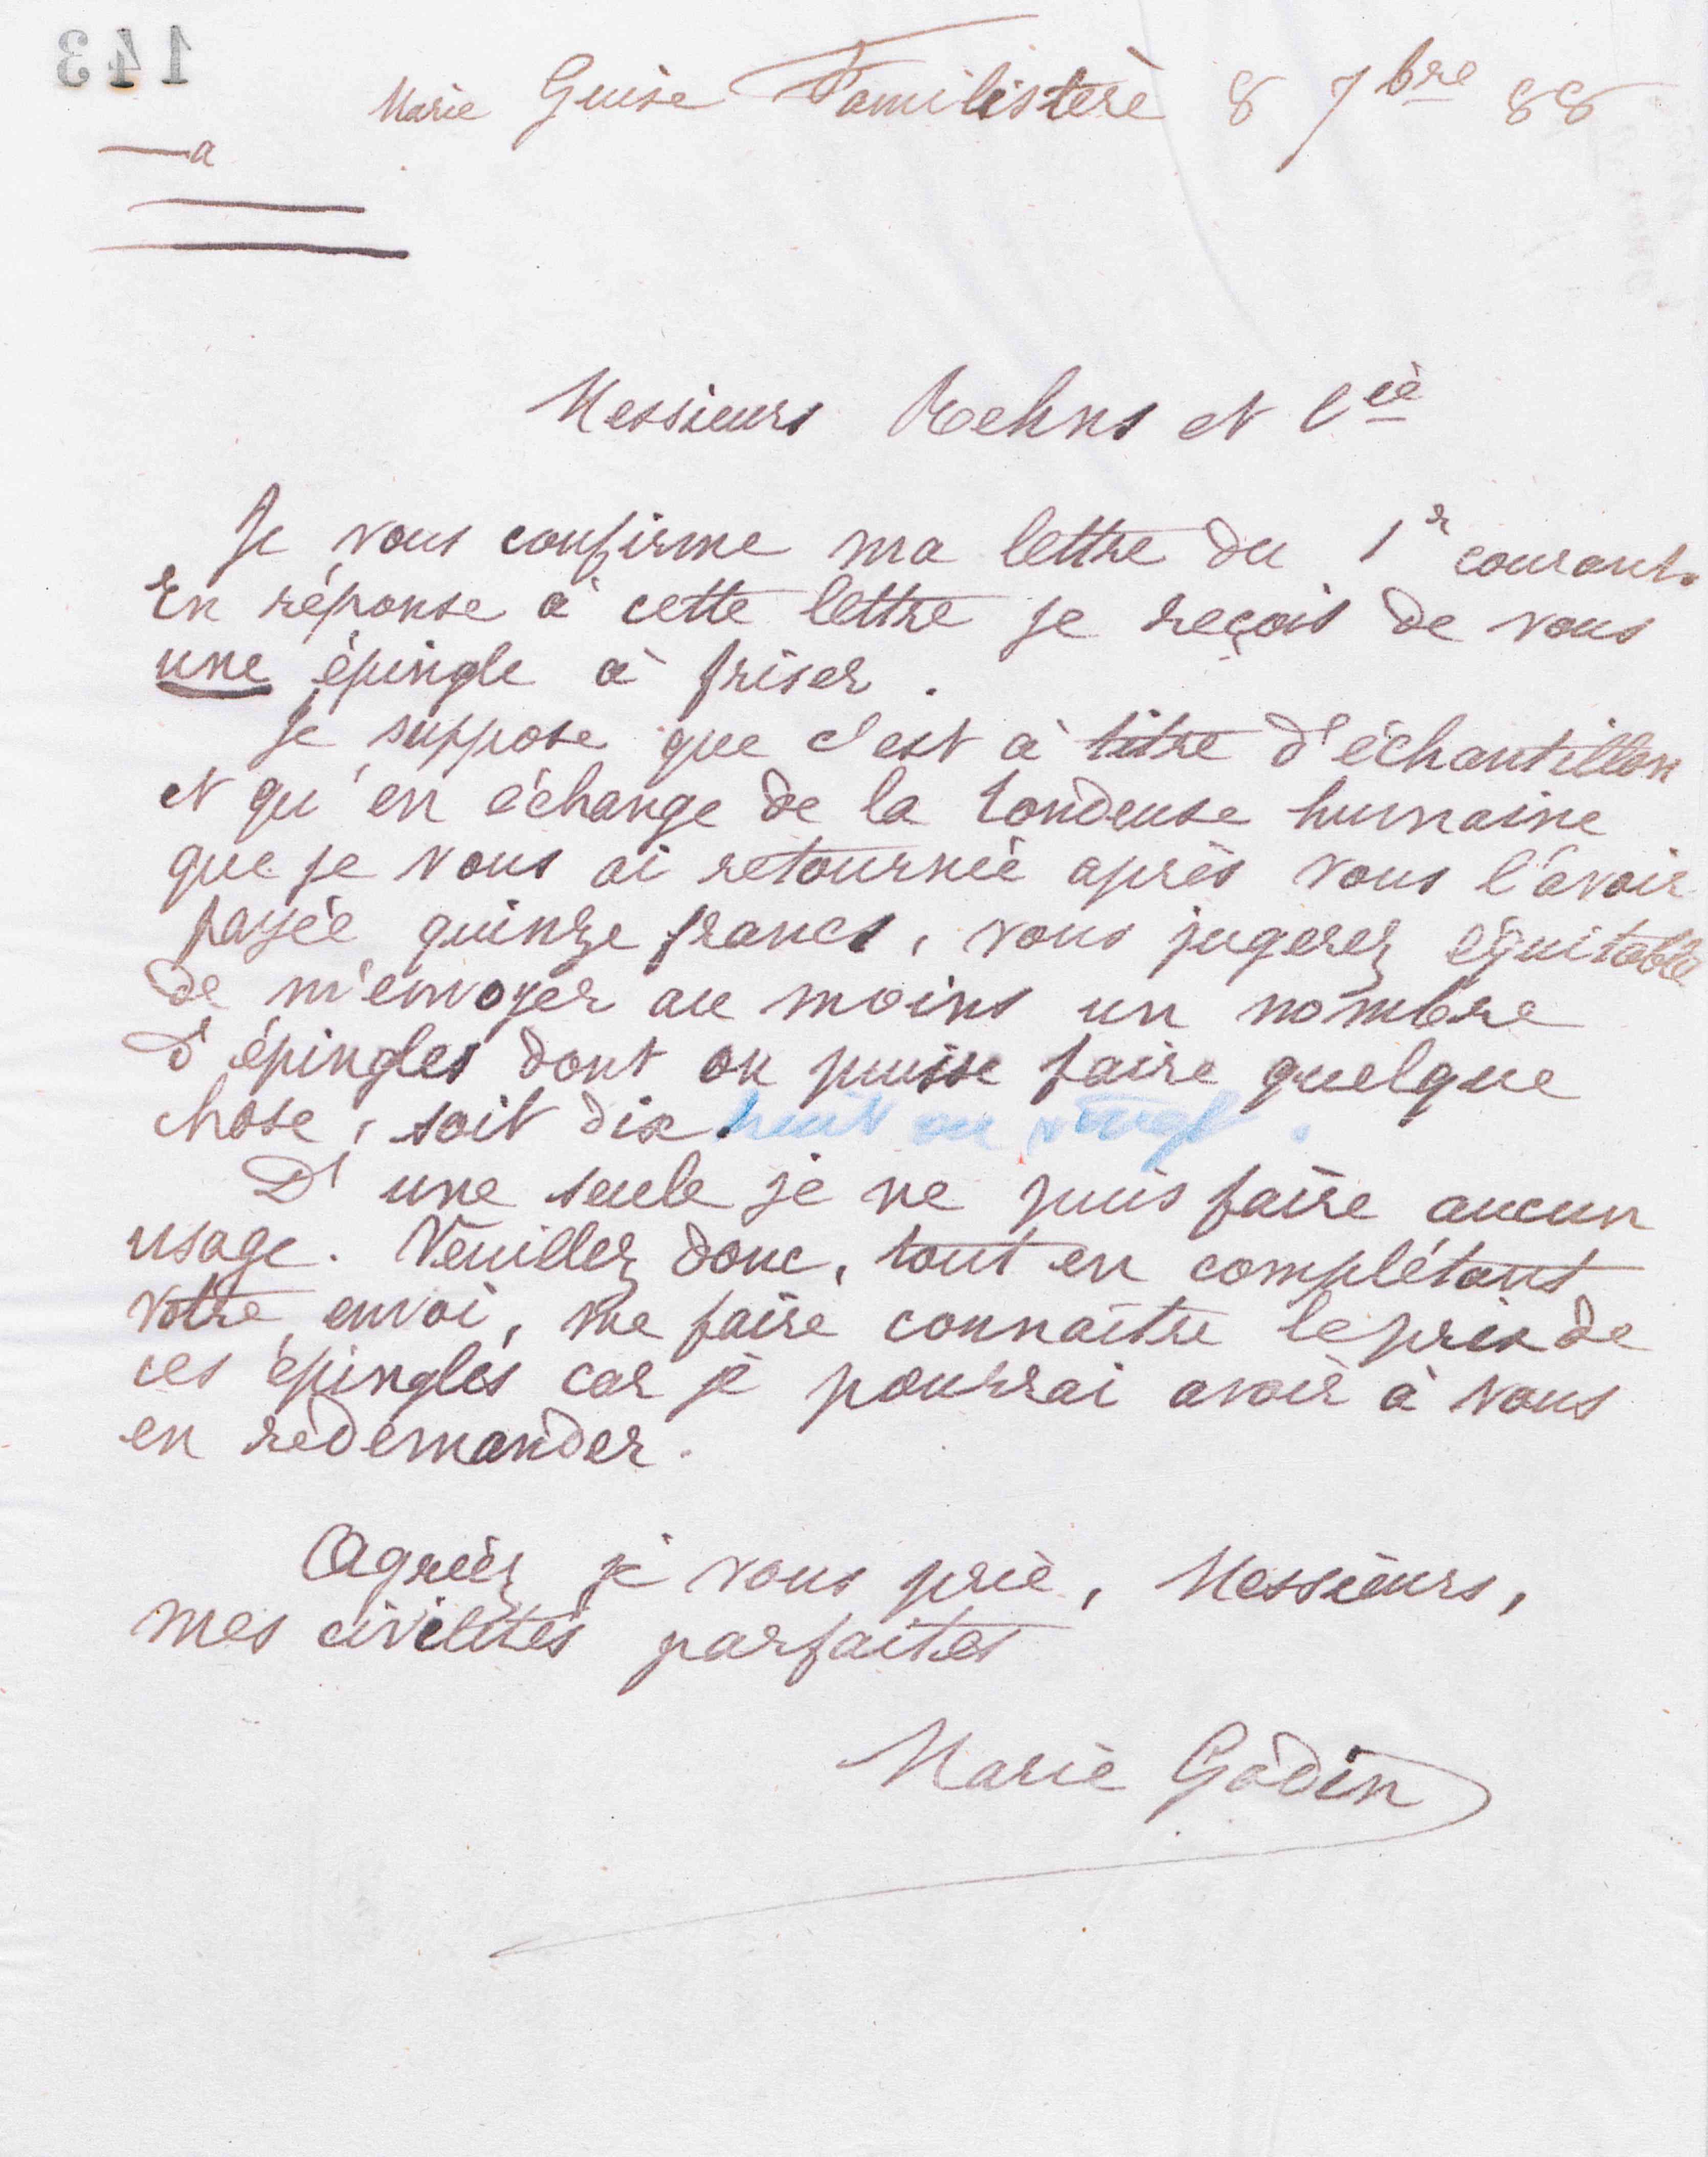 143
Marie Guise Familistère 8 7bre 88
a
Messieurs Rehns et Cie
Je vous confirme ma lettre du 1r courant.
En réponse à cette lettre je reçois de vous
une épingle à friser.
Je suppose que c'est à titre d'échantillon
et qu'en échange de la tondeuse humaine
que je vous ai retournée après vous l'avoir
payée quinze francs, vous jugerez équitable
de m'envoyer au moins un nombre
d'épingles dont on puisse faire quelque
chose, soit dix huit ou vingt.
D'une seule je ne puis faire aucun
usage. Veuillez donc, tout en complétant
votre envoi, me faire connaître le prix de
ces épingles car je pourrai avoir à vous
en redemander.
Agréez je vous prie, Messieurs,
mes civilités parfaites
Marie Godin